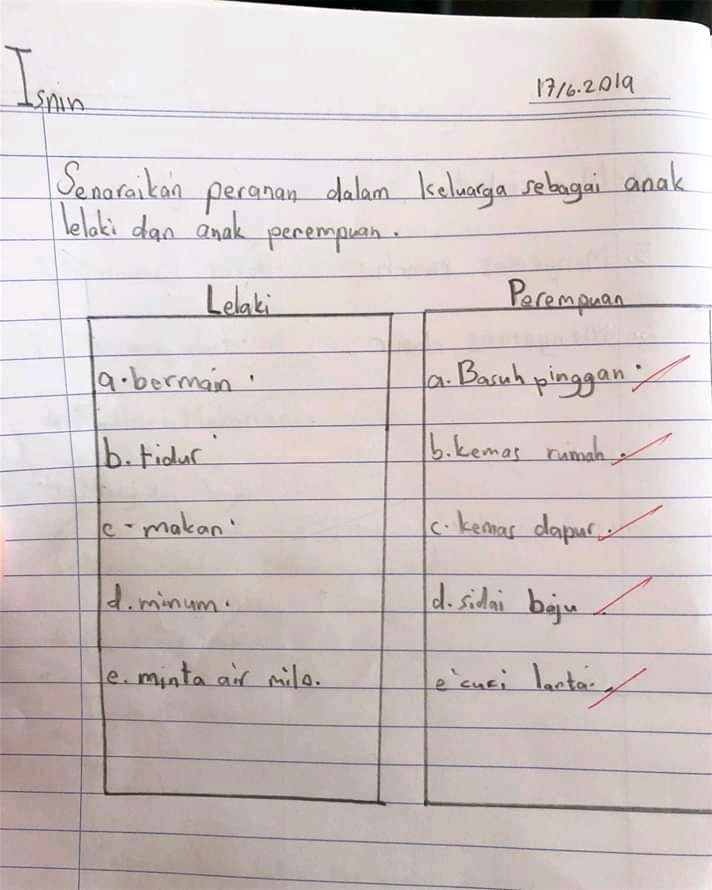 Isnin
17/6.2019
Senaraikan peranan dalam keluarga sebagai anak
lelaki dan anak perempuan.
Lelaki
a. bermain.
b. tidur
c - makan.
d. minum.
e. minta air milo.
Perempuan
a. Basuh pinggan.
b. kemas rumah.
c. kemas dapur.
d. sidai baju
e cuci lantai.